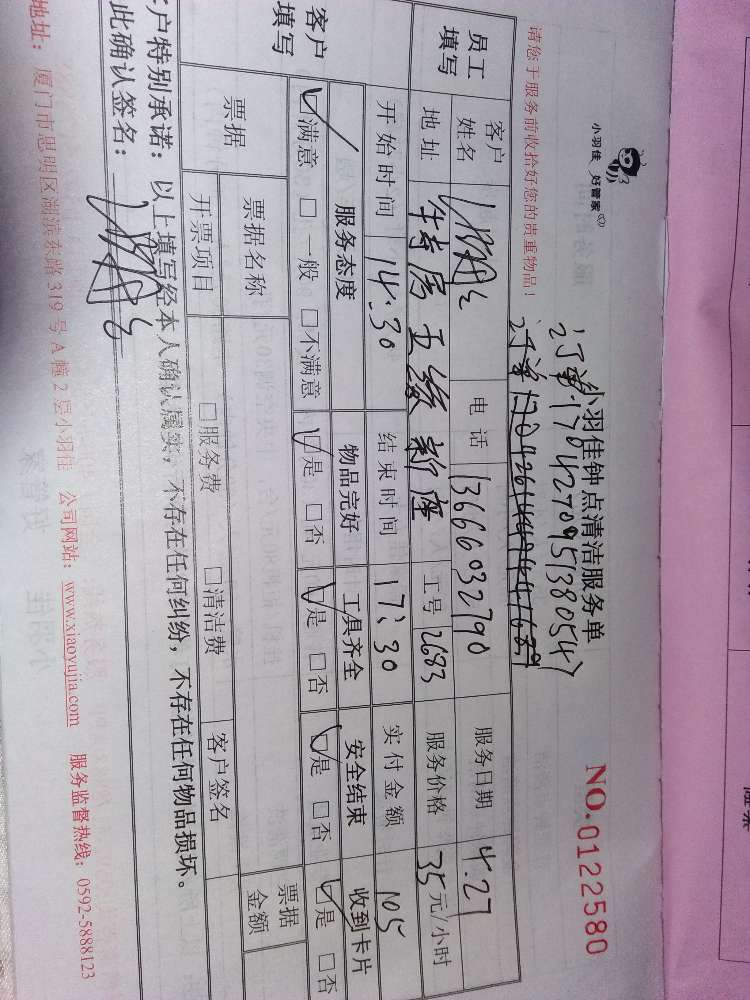 小羽佳 好管家
小羽佳钟点清洁服务单
NO.0122580
订单1704270951380547
请您于服务前收拾好您的贵重物品！
员工填写 客户姓名 电话 13666032790 服务日期 4.27
地址 特房五缘新座 工号 2683 服务价格 35元/小时
开始时间 14:30 结束时间 17:30 实付金额 105
客户填写 服务态度 物品完好 工具齐全 安全结束 收到卡片
☑满意 □一般 □不满意 ☑是 □否 ☑是 □否 ☑是 □否 ☑是 □否
票据 票据名称 票据金额
开票项目 □服务费 □清洁费 客户签名
户特别承诺：以上填写经本人确认属实，不存在任何纠纷，不存在任何物品损坏。
此确认签名：
地址：厦门市思明区湖滨东路319号A幢2层小羽佳 公司网站：www.xiaoyujia.com 服务监督热线：0592-5888123